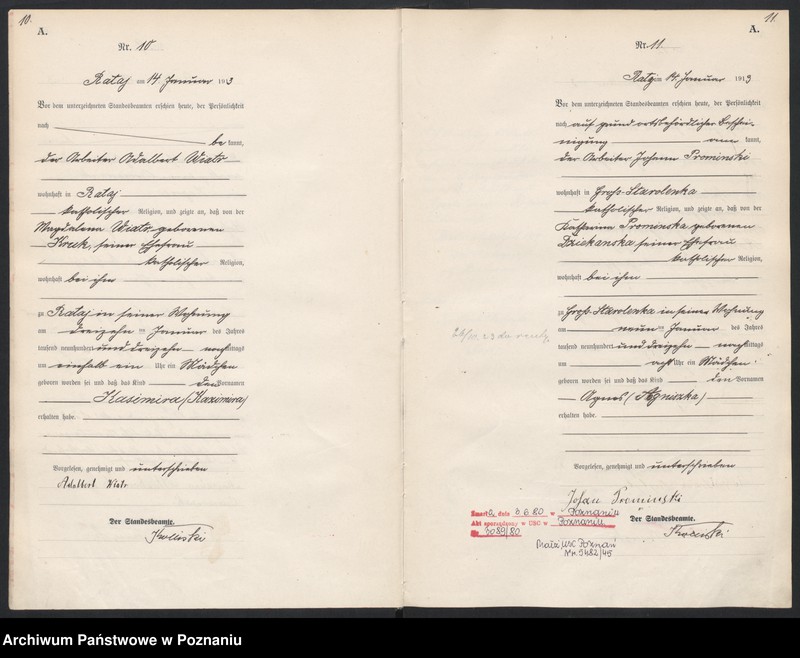 10.
A.
Nr. 10
Rataj am 14 Januar 1913
Vor dem unterzeichneten Standesbeamten erschien heute, der Persönlichkeit
nach
be kannt,
der Arbeiter Adalbert Wiatr
wohnhaft in Rataj
katholischer Religion, und zeigte an, daß von der
Magdalena Wiatr geborenen
seiner Ehefrau
katholischer Religion,
wohnhaft bei ihm
zu Rataj in seiner Wohnung
am dreizehn ten Januar des Jahres
tausend neunhundert und dreizehn nachmittags
um einhalb ein Uhr ein Mädchen
geboren worden sei und daß das Kind den Vornamen
Kasimira (Kazimira)
erhalten habe.
Vorgelesen, genehmigt und unterschrieben
Adalbert Wiatr
Der Standesbeamte.
11.
A.
Nr. 11.
Rataj am 14. Januar 1913
Vor dem unterzeichneten Standesbeamten erschien heute, der Persönlichkeit
nach auf grund ortsbehördlicher Beschei-
nigung aner kannt,
der Arbeiter Johann Prominski
wohnhaft in Groß-Starolenka
katholischer Religion, und zeigte an, daß von der
Katharina Prominska geborenen
Dziekanska seiner Ehefrau
katholischer Religion,
wohnhaft bei ihm
zu Groß-Starolenka in seiner Wohnung
am neun ten Januar des Jahres
tausend neunhundert und dreizehn nachmittags
um acht Uhr ein Mädchen
geboren worden sei und daß das Kind den Vornamen
Agnes (Agniszka)
erhalten habe.
Vorgelesen, genehmigt und unterschrieben
Johan Prominski
Der Standesbeamte.
Zmarła dnia 3 6 80 w Poznaniu
Akt sporządzony w USC w Poznaniu
Nr. 3089/80
Małż. USC Poznań
Nr. 1482/45
Archiwum Państwowe w Poznaniu